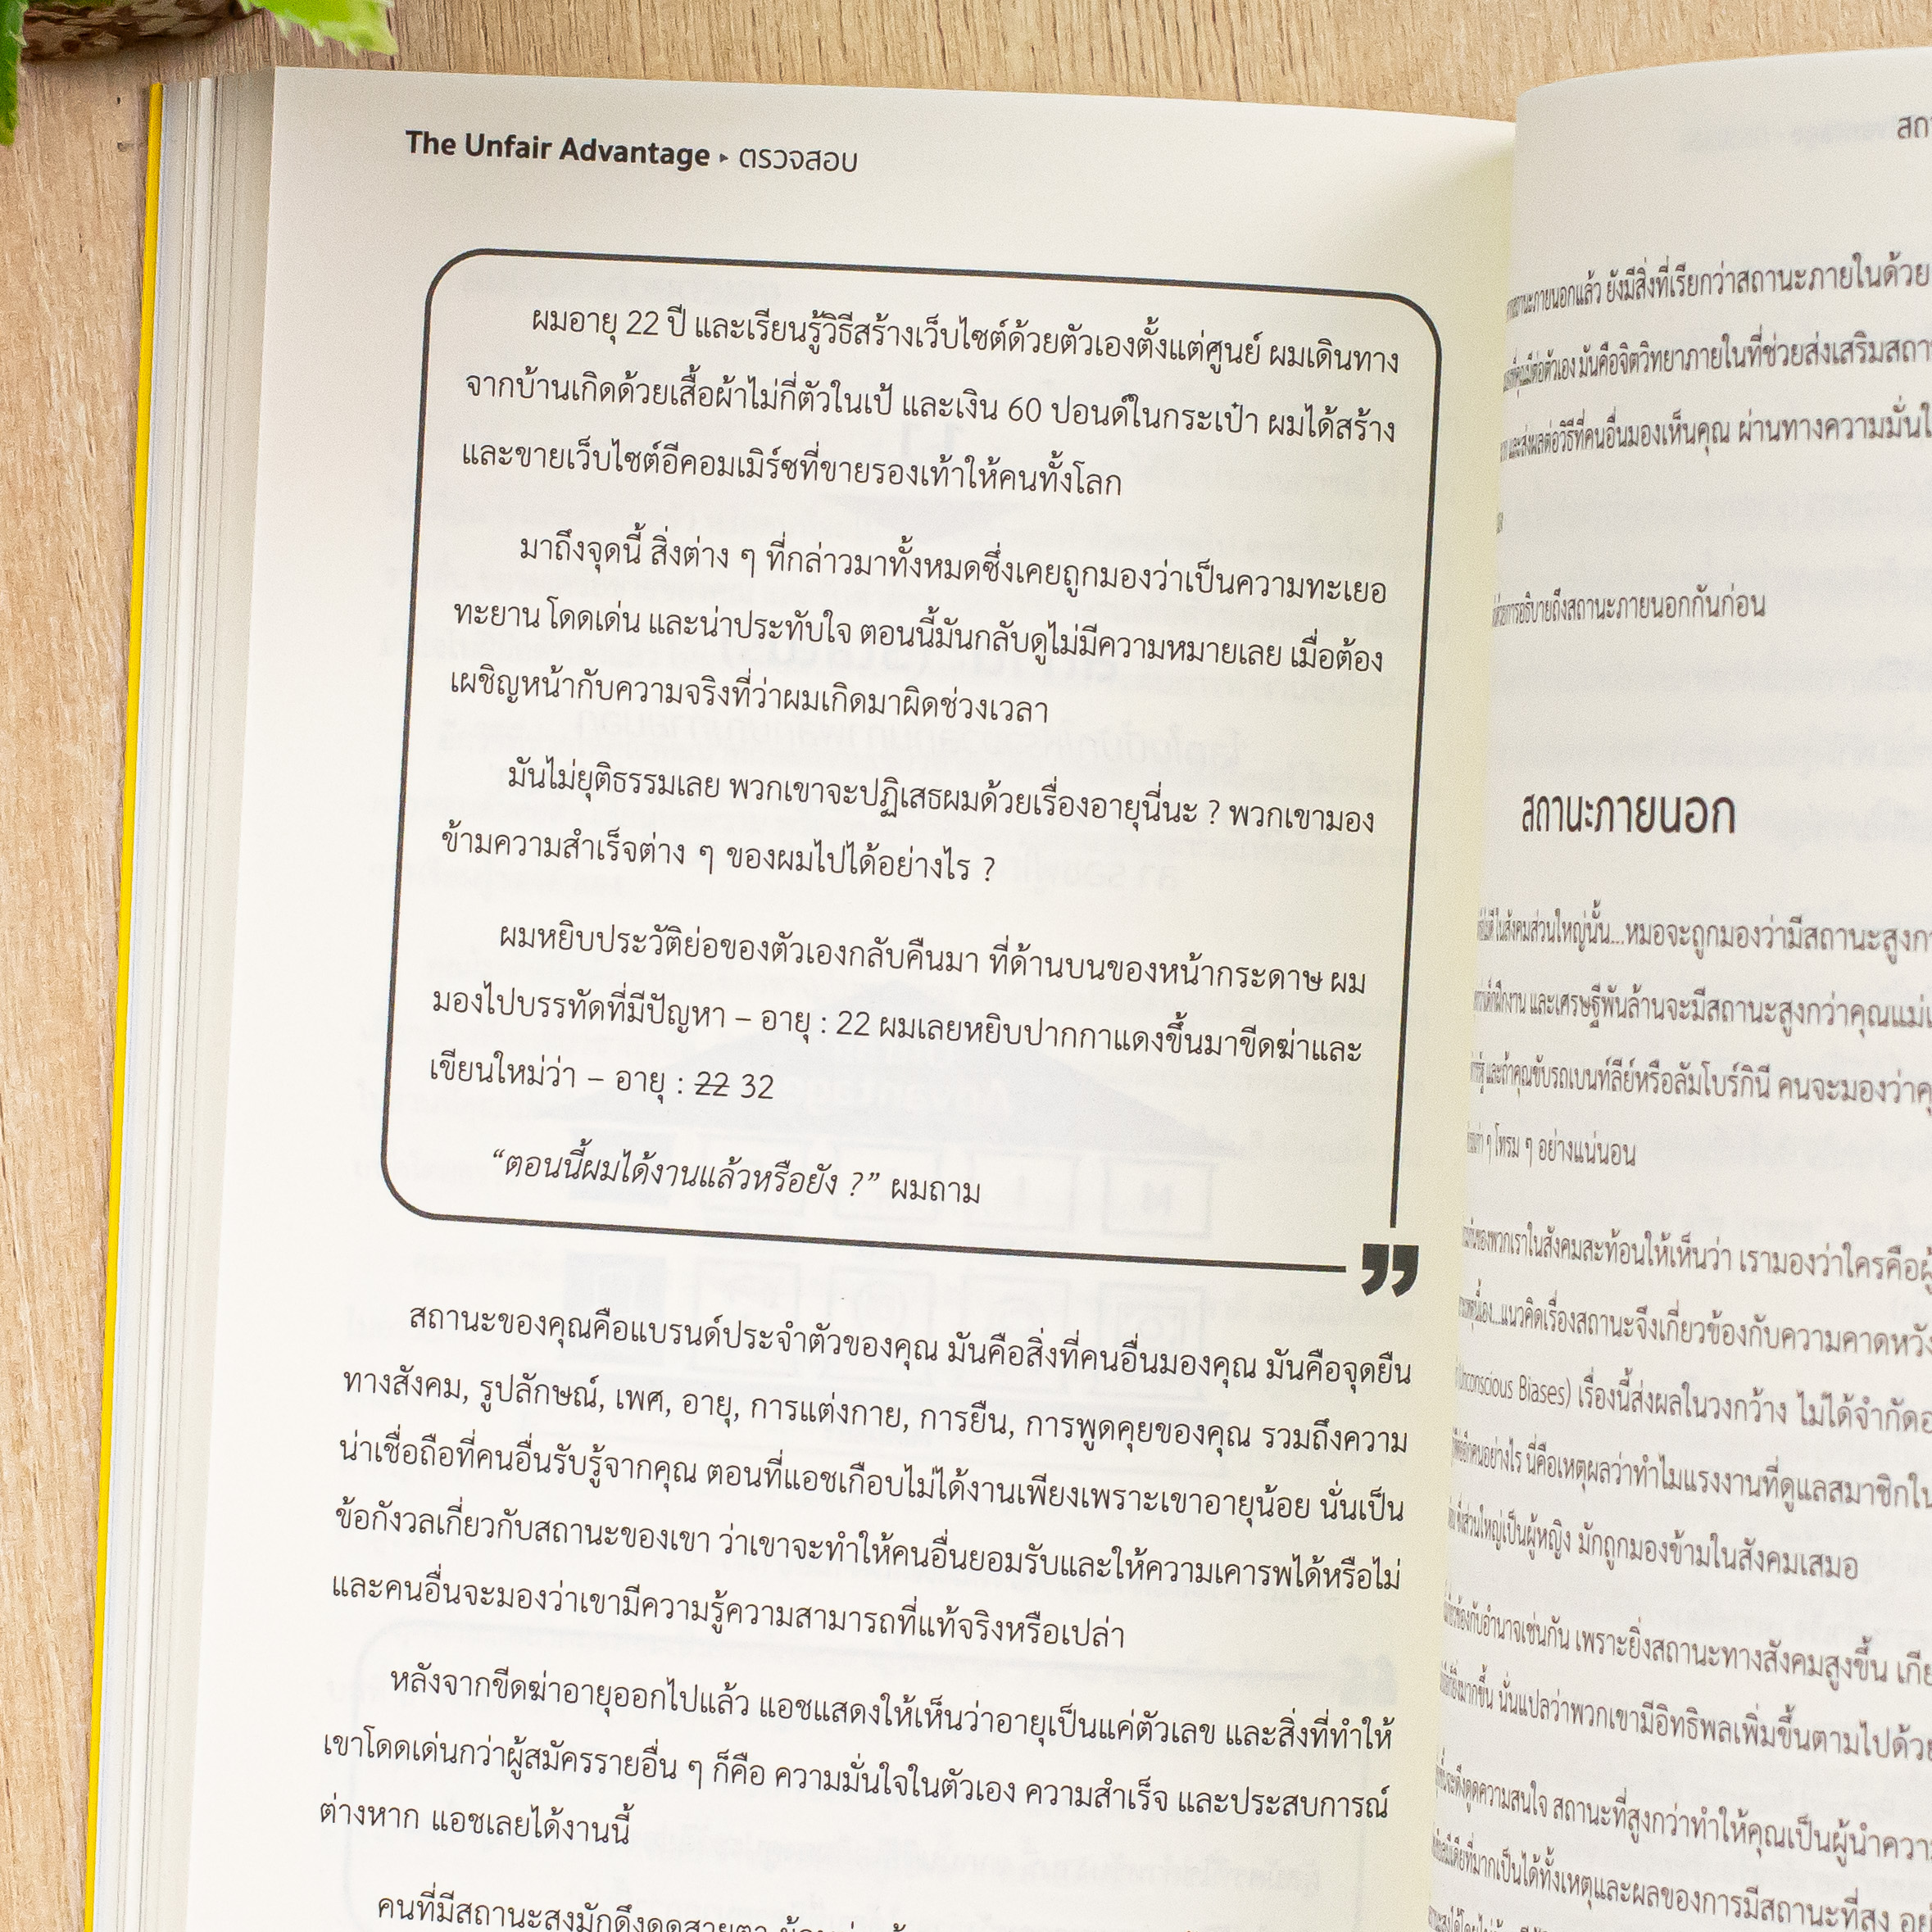 The Unfair Advantage ▸ ตรวจสอบ
ผมอายุ 22 ปี และเรียนรู้วิธีสร้างเว็บไซต์ด้วยตัวเองตั้งแต่ศูนย์ ผมเดินทาง
จากบ้านเกิดด้วยเสื้อผ้าไม่กี่ตัวในเป้ และเงิน 60 ปอนด์ในกระเป๋า ผมได้สร้าง
และขายเว็บไซต์อีคอมเมิร์ซที่ขายรองเท้าให้คนทั้งโลก
มาถึงจุดนี้ สิ่งต่าง ๆ ที่กล่าวมาทั้งหมดซึ่งเคยถูกมองว่าเป็นความทะเยอ
ทะยาน โดดเด่น และน่าประทับใจ ตอนนี้มันกลับดูไม่มีความหมายเลย เมื่อต้อง
เผชิญหน้ากับความจริงที่ว่าผมเกิดมาผิดช่วงเวลา
มันไม่ยุติธรรมเลย พวกเขาจะปฏิเสธผมด้วยเรื่องอายุนี่นะ ? พวกเขามอง
ข้ามความสำเร็จต่าง ๆ ของผมไปได้อย่างไร ?
ผมหยิบประวัติย่อของตัวเองกลับคืนมา ที่ด้านบนของหน้ากระดาษ ผม
มองไปบรรทัดที่มีปัญหา – อายุ : 22 ผมเลยหยิบปากกาแดงขึ้นมาขีดฆ่าและ
เขียนใหม่ว่า – อายุ : 22 32
“ตอนนี้ผมได้งานแล้วหรือยัง ?” ผมถาม
”
สถานะของคุณคือแบรนด์ประจำตัวของคุณ มันคือสิ่งที่คนอื่นมองคุณ มันคือจุดยืน
ทางสังคม, รูปลักษณ์, เพศ, อายุ, การแต่งกาย, การยืน, การพูดคุยของคุณ รวมถึงความ
น่าเชื่อถือที่คนอื่นรับรู้จากคุณ ตอนที่แอชเกือบไม่ได้งานเพียงเพราะเขาอายุน้อย นั่นเป็น
ข้อกังวลเกี่ยวกับสถานะของเขา ว่าเขาจะทำให้คนอื่นยอมรับและให้ความเคารพได้หรือไม่
และคนอื่นจะมองว่าเขามีความรู้ความสามารถที่แท้จริงหรือเปล่า
หลังจากขีดฆ่าอายุออกไปแล้ว แอชแสดงให้เห็นว่าอายุเป็นแค่ตัวเลข และสิ่งที่ทำให้
เขาโดดเด่นกว่าผู้สมัครรายอื่น ๆ ก็คือ ความมั่นใจในตัวเอง ความสำเร็จ และประสบการณ์
ต่างหาก แอชเลยได้งานนี้
คนที่มีสถานะสูงมักดึงดูดสายตา
ยังมีสิ่งที่เรียกว่าสถานะภายในด้วย
มันคือจิตวิทยาภายในที่ช่วยส่งเสริม
และส่งผลต่อวิธีที่คนอื่นมองเห็นคุณ ผ่านทางความ
การอธิบายถึงสถานะภายนอกกันก่อน
สถานะภายนอก
ในสังคมส่วนใหญ่นั้น...หมอจะถูกมองว่ามีสถานะสูง
และเศรษฐีพันล้านจะมีสถานะสูงกว่าคุณ
และถ้าคุณขับรถเบนท์ลีย์หรือลัมโบร์กินี คนจะมองว่า
ๆ โทรม ๆ อย่างแน่นอน
ของพวกเราในสังคมสะท้อนให้เห็นว่า เรามองว่าใครคือ
แนวคิดเรื่องสถานะจึงเกี่ยวข้องกับความคาดหวัง
Unconscious Biases) เรื่องนี้ส่งผลในวงกว้าง ไม่ได้จำกัด
นี่คือเหตุผลว่าทำไมแรงงานที่ดูแลสมาชิกใน
ซึ่งส่วนใหญ่เป็นผู้หญิง มักถูกมองข้ามในสังคมเสมอ
กับอำนาจเช่นกัน เพราะยิ่งสถานะทางสังคมสูงขึ้น
นั่นแปลว่าพวกเขามีอิทธิพลเพิ่มขึ้นตามไปด้วย
ดึงดูดความสนใจ สถานะที่สูงกว่าทำให้คุณเป็นผู้นำ
ที่มากเป็นได้ทั้งเหตุและผลของการมีสถานะที่สูง